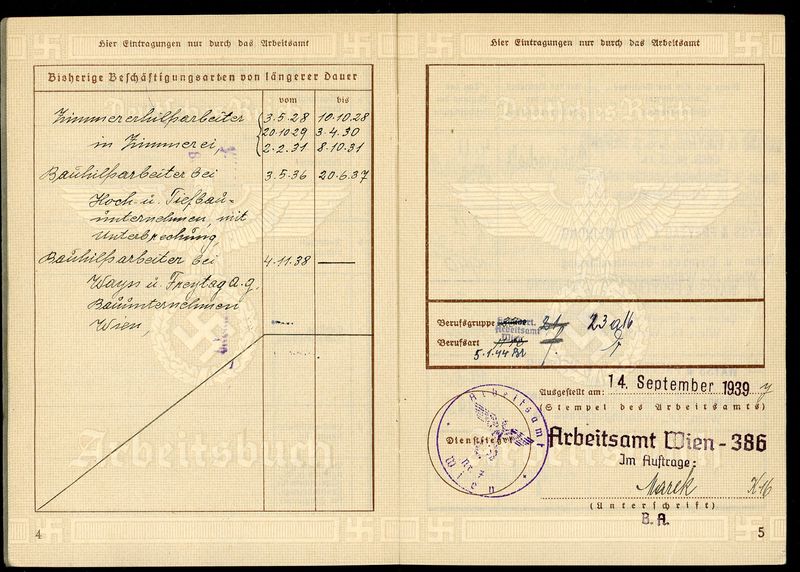 Hier Eintragungen nur durch das Arbeitsamt
Bisherige Beschäftigungsarten von längerer Dauer
vom bis
Zimmererhilfsarbeiter 3.5.28 10.10.28
in Zimmerei, 20.10.29 3.4.30
2.2.31 8.10.31
Bauhilfsarbeiter bei 3.5.36 20.6.37
Hoch u. Tiefbau-
unternehmen, mit
Unterbrechung,
Bauhilfsarbeiter bei 4.11.38 —
Wayss u. Freytag A.G.
Bauunternehmen
Wien,
Arbeitsbuch
4
Hier Eintragungen nur durch das Arbeitsamt
Deutsches Reich
Berufsgruppe 23a16
Berufsart
5.1.44
Ausgestellt am: 14. September 1939
(Stempel des Arbeitsamts)
Arbeitsamt
Wien
Nr. 7
Dienstsiegel
Arbeitsamt Wien - 386
Im Auftrage:
Marek
(Unterschrift)
B. A.
5